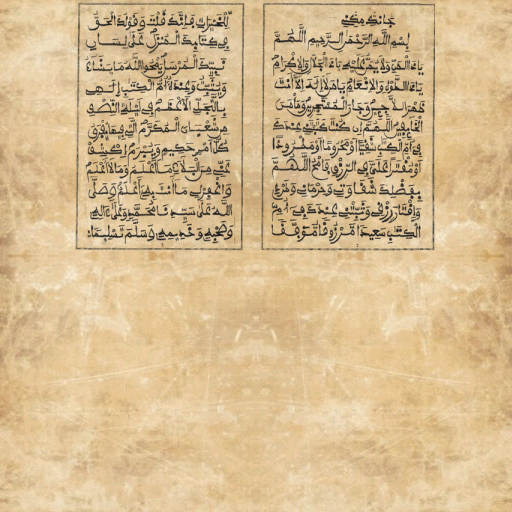 بسم الله الرحمن الرحيم اللهم
ياذا المن ولا يمن عليه ياذا الجلال والاكرام
ياذا الطول والانعام يا من لا إله إلا أنت
ظهر اللاجين وجار المستجيرين ومأمن
الخائفين اللهم إن كنت كتبتني عندك
في أم الكتاب شقيا أو محروما أو مطرودا
أو مقترا علي في الرزق فامح اللهم
بفضلك شقاوتي وحرماني وطردي
وإقتار رزقي وثبتني عندك في أم
الكتاب سعيدا مرزوقا موفقا
للخيرات فإنك قلت وقولك الحق
في كتابك المنزل على لسان
نبيك المرسل يمحوا الله ما يشاء
ويثبت وعنده أم الكتاب إلهي
بالتجلي الأعظم في ليلة النصف
من شعبان المكرم التي يفرق
كل أمر حكيم ويبرم اكشف
عني من البلاء ما أعلم وما لا أعلم
واغفر لي ما أنت به أعلم وصلى
الله على سيدنا محمد وعلى آله
وصحبه وسلم تسليما